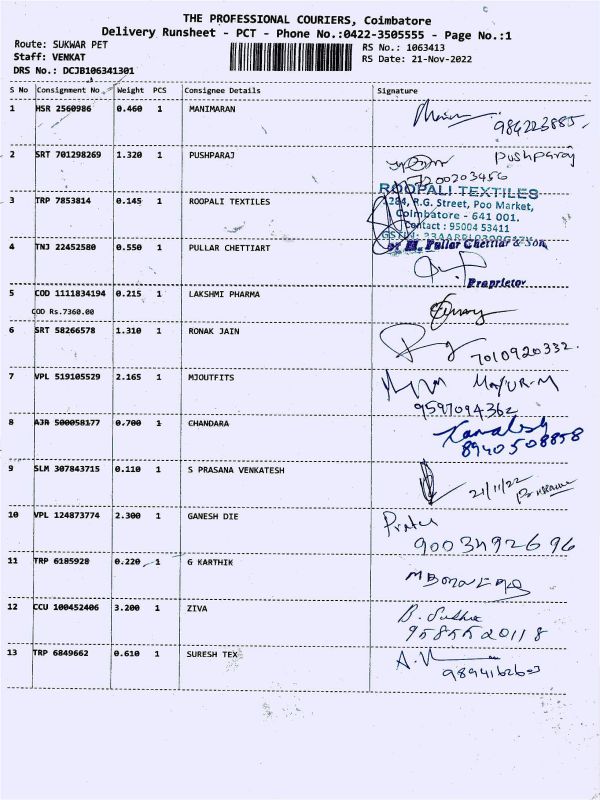 THE PROFESSIONAL COURIERS, Coimbatore
Delivery Runsheet - PCT - Phone No.:0422-3505555 - Page No.:1
Route: SUKWAR PET
RS No.: 1063413
Staff: VENKAT
RS Date: 21-Nov-2022
DRS No.: DCJB106341301
S No Consignment No Weight PCS Consignee Details Signature
1 HSR 2560986 0.460 1 MANIMARAN
2 SRT 701298269 1.320 1 PUSHPARAJ Pushparaj
7200203456
3 TRP 7853814 0.145 1 ROOPALI TEXTILES
ROOPALI TEXTILES
284, R.G. Street, Poo Market,
Coimbatore - 641 001.
Contact : 95004 53411
4 TNJ 22452580 0.550 1 PULLAR CHETTIART
Pullar Chettiar & Son
Proprietor
5 COD 1111834194 0.215 1 LAKSHMI PHARMA
COD Rs.7360.00
6 SRT 58266578 1.310 1 RONAK JAIN
7010920332.
7 VPL 519105529 2.165 1 MJOUTFITS MAYUR.M
9597094362
8 AJR 500058177 0.700 1 CHANDARA Kamalesh
8940508858
9 SLM 307843715 0.110 1 S PRASANA VENKATESH
21/11/22
10 VPL 124873774 2.300 1 GANESH DIE
9003492696
11 TRP 6185928 0.220 1 G KARTHIK
12 CCU 100452406 3.200 1 ZIVA
9585520118
13 TRP 6849662 0.610 1 SURESH TEX